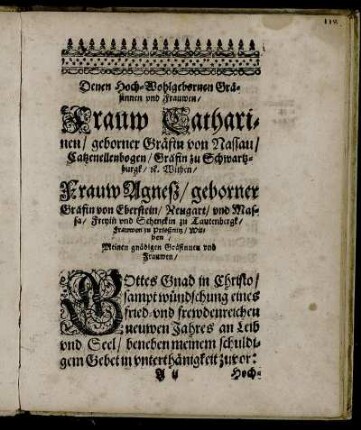 Denen Hoch-Wohlgebornen Grä-
finnen vnd Frauwen/
Frauw Cathari-
nen/ geborner Gräfin von Nassau/
Catzenellenbogen/ Gräfin zu Schwartz-
burgk/ ꝛc. Witben/
Frauw Agneß/ geborner
Gräfin von Eberstein/ Neugart/ vnd Mas-
sa/ Freyin vnd Schenckin zu Tautenbergk/
Frauwen zu Wit-
ben/
Meinen gnädigen Gräfinnen vnd
Frauwen/
GOttes Gnad in Christo/
sampt wündschung eines
fried vnd frewdenreichen
neuwen Jahres an Leib
vnd Seel/ beneben meinem schuldi-
gem Gebet in vnterthänigkeit zuvor:
A ij Hoch-